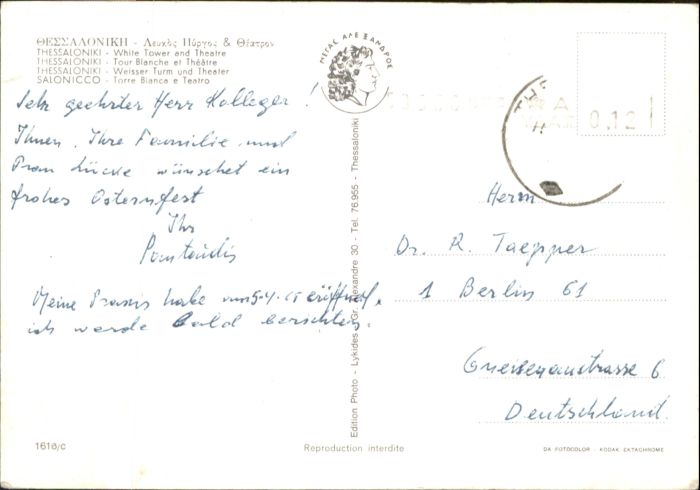 ΘΕΣΣΑΛΟΝΙΚΗ - Λευκὸς Πύργος & Θέατρον
THESSALONIKI - White Tower and Theatre
THESSALONIKI - Tour Blanche et Théâtre
THESSALONIKI - Weisser Turm und Theater
SALONICCO - Torre Bianca e Teatro
ΜΕΓΑΣ ΑΛΕΞΑΝΔΡΟΣ
0,12
Sehr geehrter Herr Kollege !
Ihnen, Ihre Familie und
Frau Lücke wünschet ein
frohes Osternfest
Ihr
Meine Praxis habe eröffnet,
ich werde bald berichten.
Herrn
Dr. R. Taepper
1 Berlin 61
Gneisenaustrasse 6
Deutschland.
Edition Photo - Lykides - Gr. Alexandre 30 - Tel. 76.955 - Thessaloniki
1610/c
Reproduction interdite
DA FOTOCOLOR - KODAK EKTACHROME